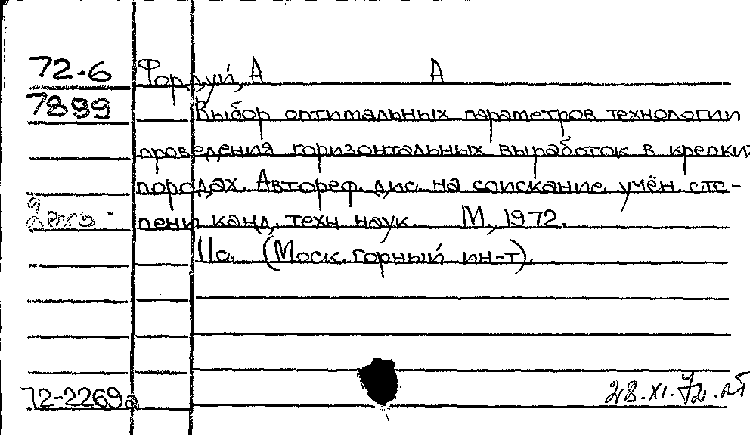 72-6 Фордуй, А А
7899 Выбор оптимальных параметров технологии
проведения горизонтальных выработок в крепки
породах. Автореф. дис. на соискание учён. сте-
пени канд. техн наук. М., 1972.
11с. (Моск. горный ин-т).
72-2269а 28.XI.72.